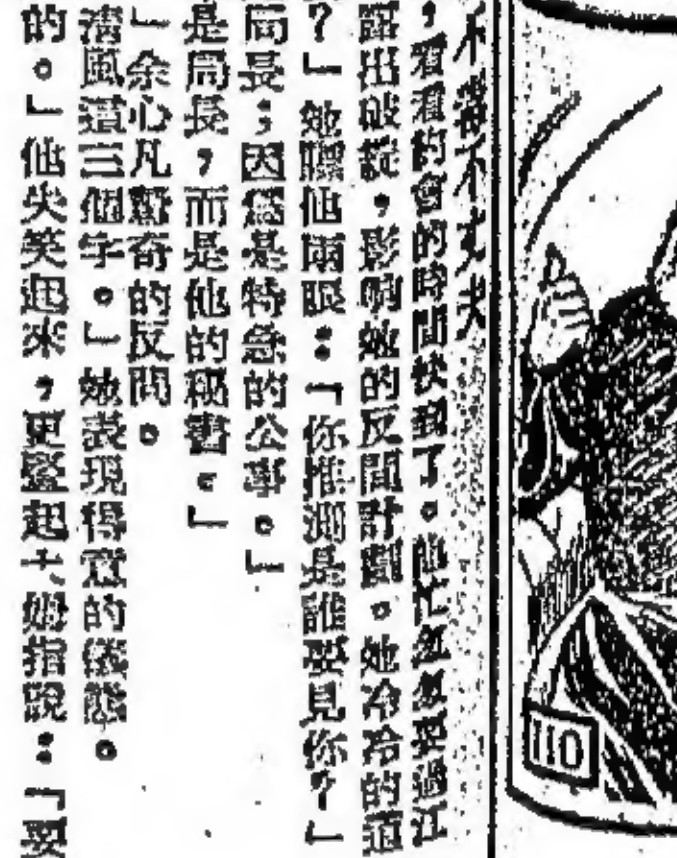 不得不丈夫
，看看約會的時間快到了。他忙匆匆要過江
露出破綻，影响她的反間計劃。她冷冷的道
？」她瞟他兩眼：「你推測是誰要見你？」
局長；因爲是特急的公事。」
是局長，而是他的秘書。」
」余心凡驚奇的反問。
清風這三個字。」她表現得意的儀態。
的。」他失笑起來，更豎起大姆指說：「要
110